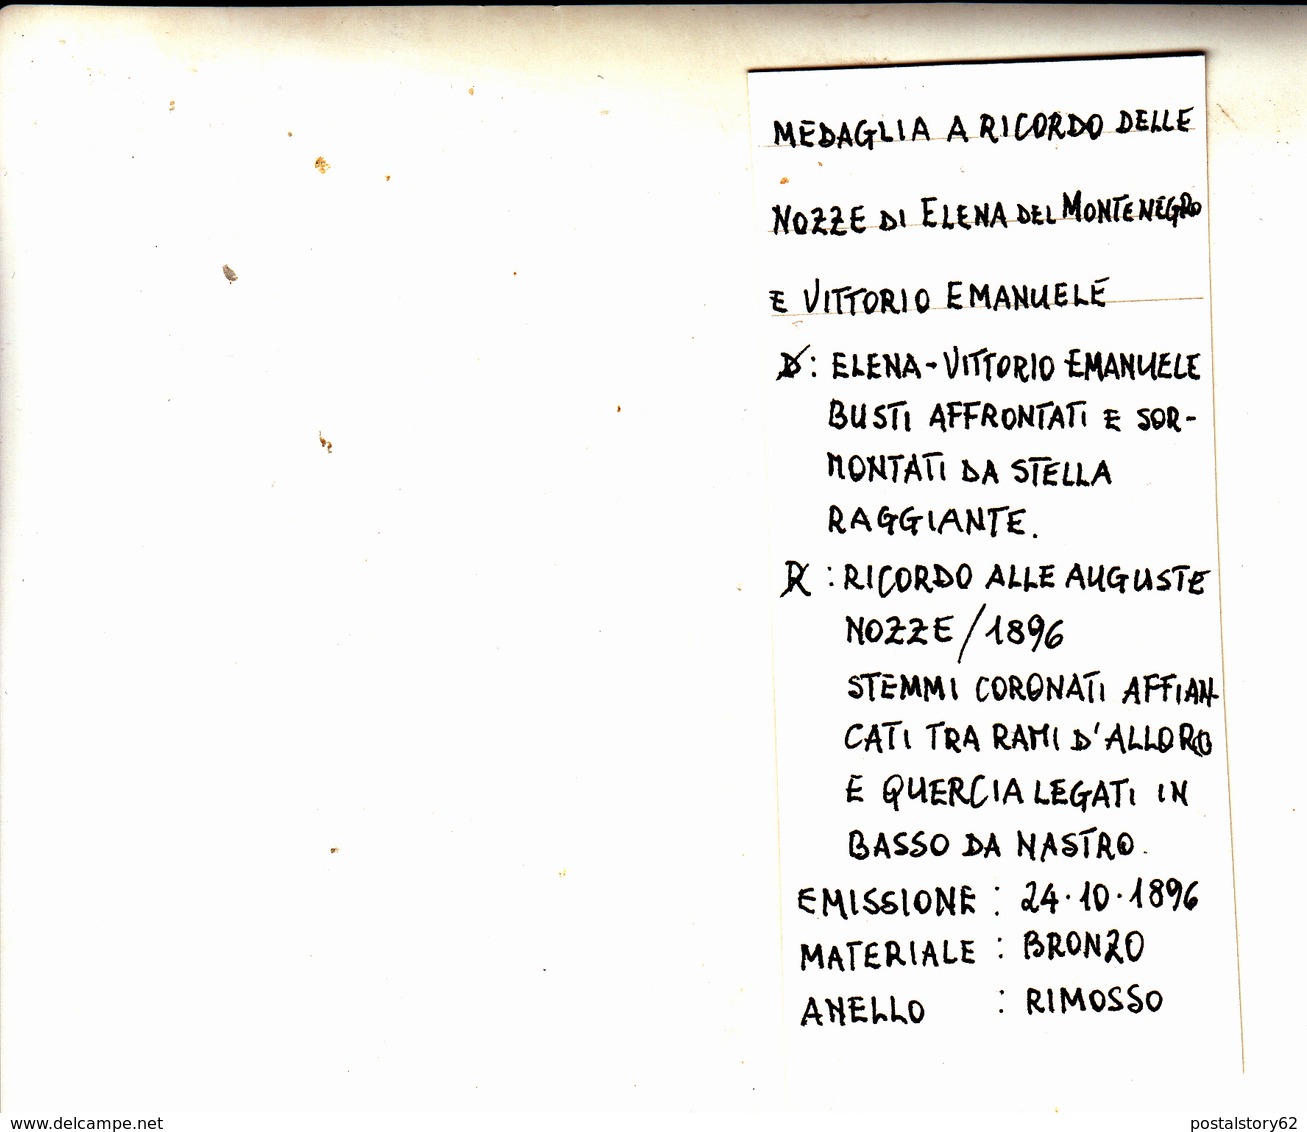 MEDAGLIA A RICORDO DELLE
NOZZE DI ELENA DEL MONTENEGRO
E VITTORIO EMANUELE
D: ELENA-VITTORIO EMANUELE
BUSTI AFFRONTATI E SOR-
MONTATI DA STELLA
RAGGIANTE.
R: RICORDO ALLE AUGUSTE
NOZZE/1896
STEMMI CORONATI AFFIAN-
CATI TRA RAMI D'ALLORO
E QUERCIA LEGATI IN
BASSO DA NASTRO.
EMISSIONE: 24.10.1896
MATERIALE: BRONZO
ANELLO : RIMOSSO
www.delcampe.net
postalstory62